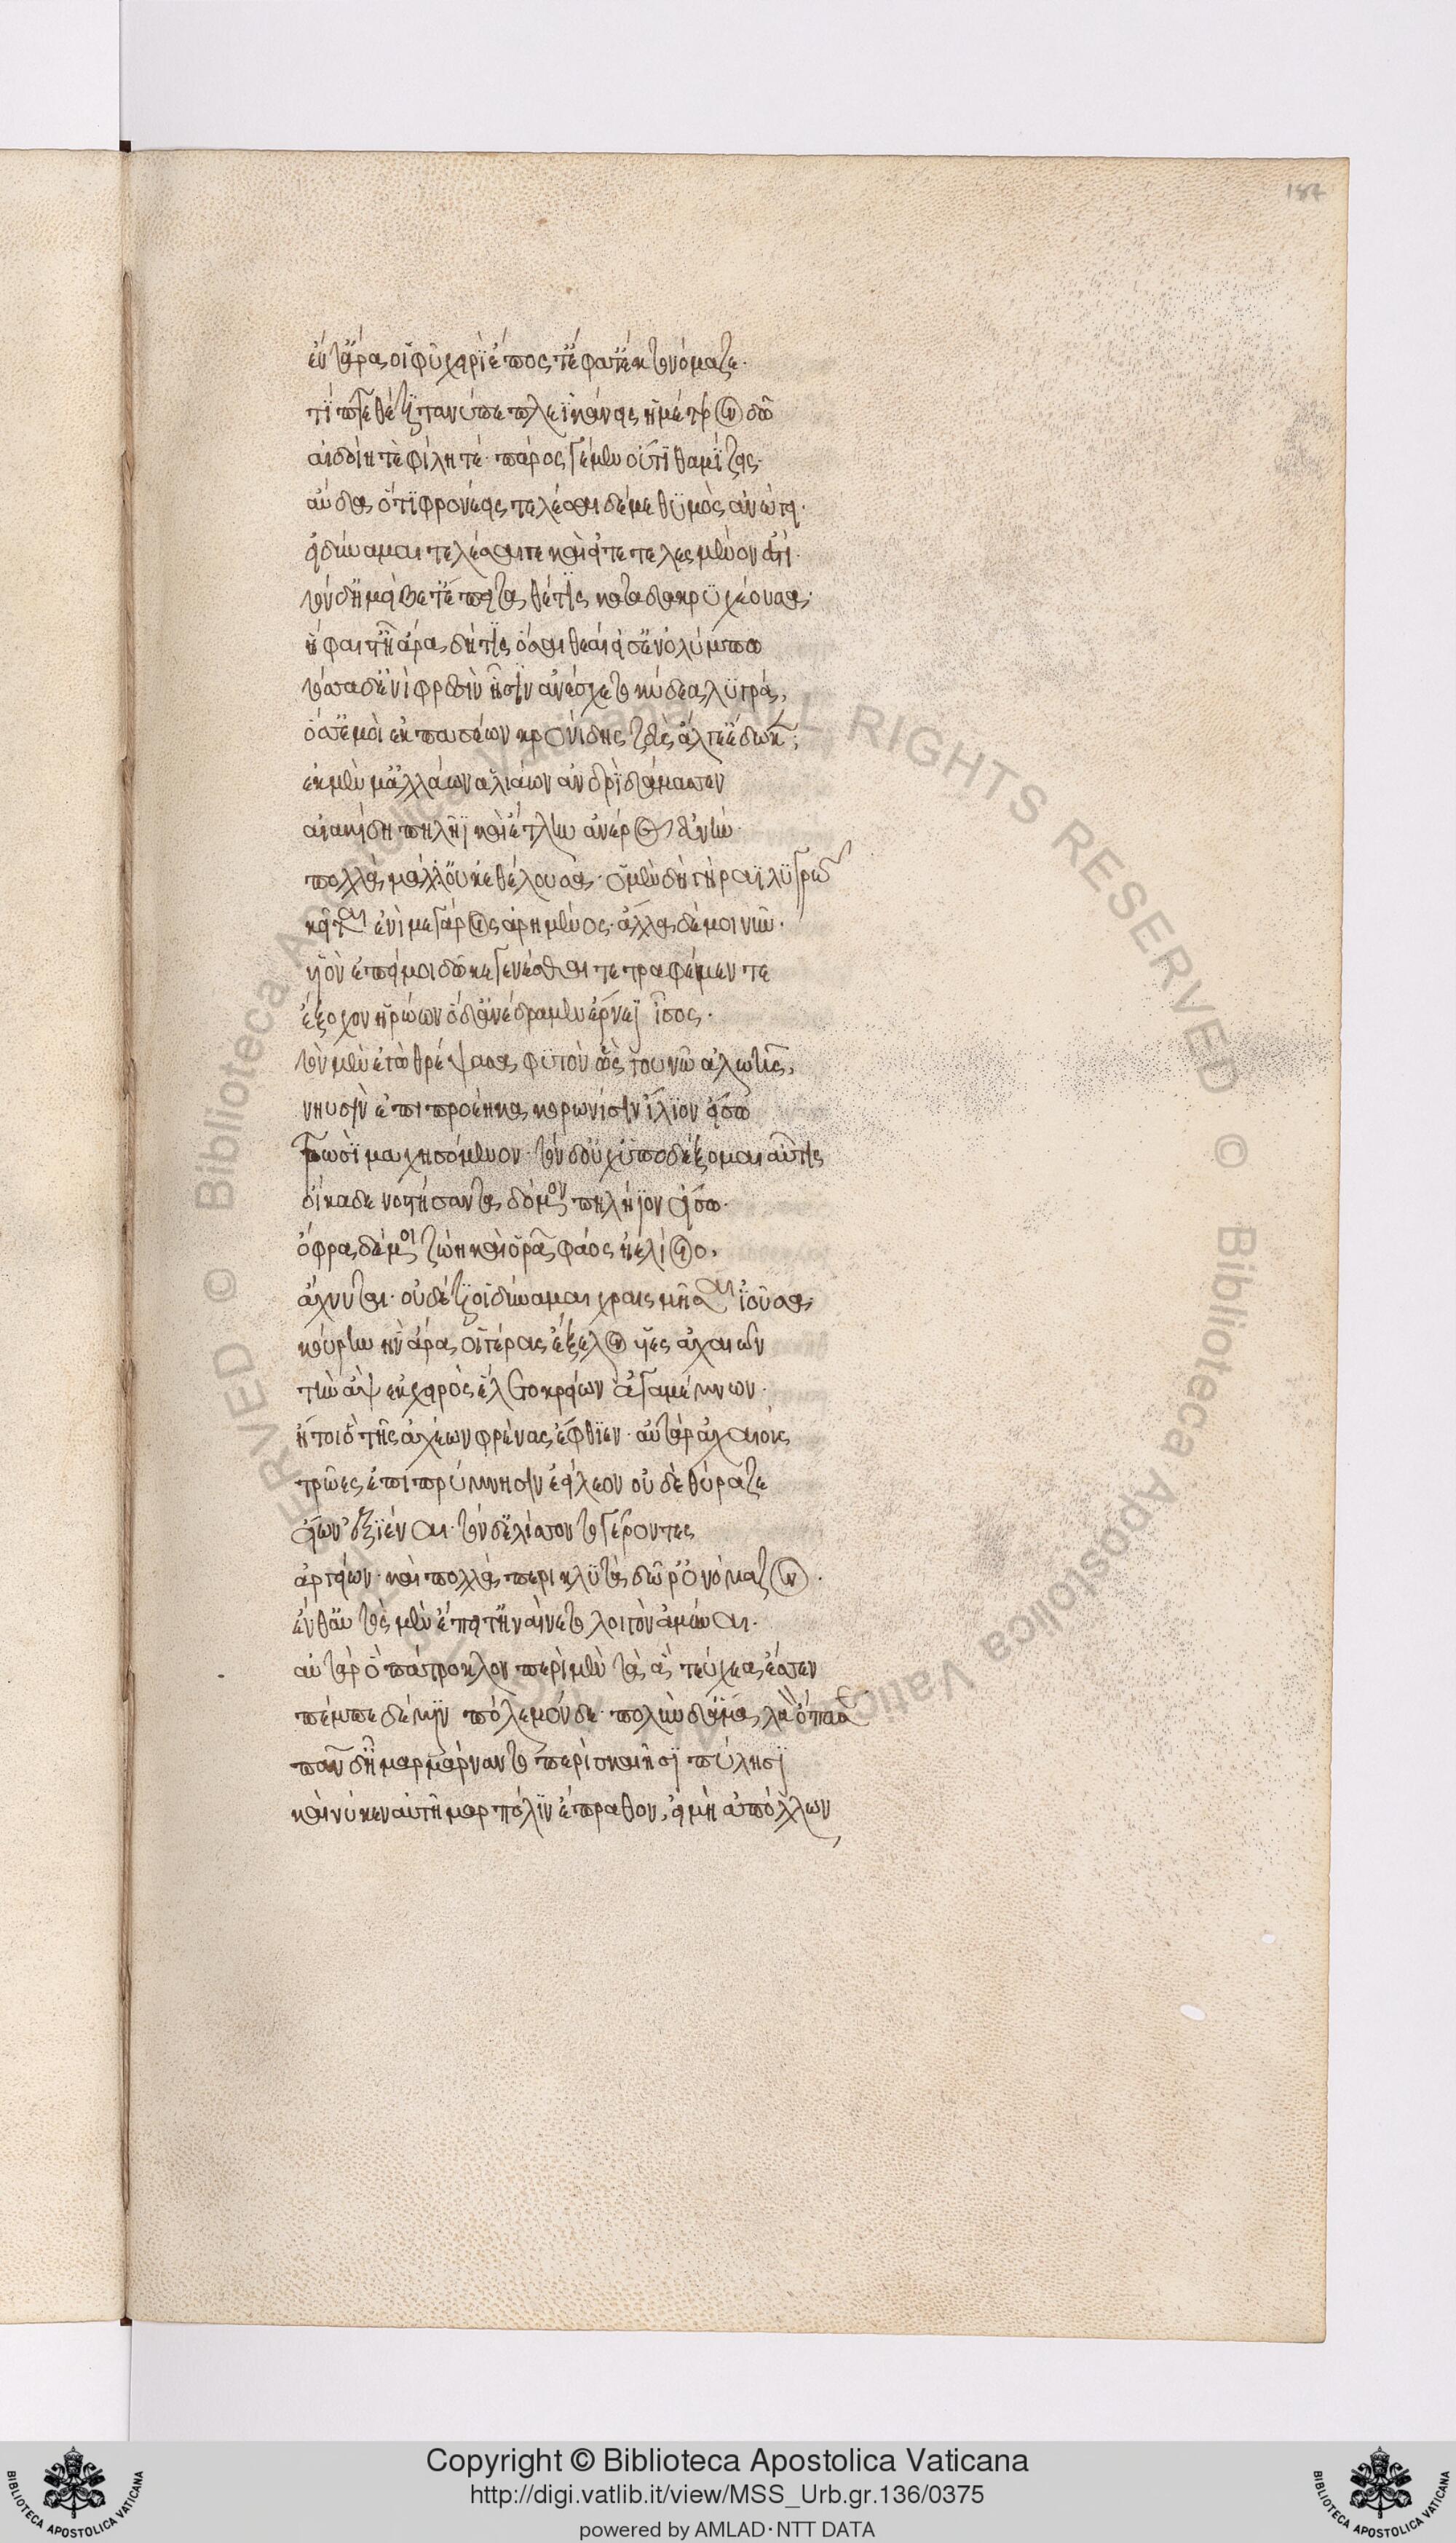 187
ἔν τ' ἄρα οἱ φῦ χειρὶ ἔπος τ' ἔφατ' ἔκ τ' ὀνόμαζε·
τίπτε θέτι τανύπεπλε ἱκάνεις ἡμέτερον δῶ
αἰδοίη τὲ φίλη τέ· πάρος γέ μὲν οὔτι θαμίζεις·
αὔδα ὅτι φρονέεις τελέσαι δέ με θυμὸς ἀνώγει·
εἰ δύναμαι τελέσαι γε καὶ εἰ τετελεσμένον ἐστί·
τὸν δ' ἠμείβετ' ἔπειτα θέτις κατὰ δακρυχέουσα·
ἥφαιστ' ἦ ἄρα δή τις ὅσαι θεαί εἰσ' ἐν ὀλύμπω
τόσσα δ' ἐνὶ φρεσὶν ᾗσιν ἀνέσχετο κήδεα λυγρά,
ὅσσ' ἐμοὶ ἐκ πασέων κρονίδης ζεὺς ἄλγε' ἔδωκε;
ἐκ μέν μ' ἀλλάων ἁλιάων ἀνδρὶ δάμασσεν
αἰακίδη πηλῆϊ καὶ ἔτλην ἀνέρος εὐνὴν
πολλὰ μάλ' οὐκ ἐθέλουσα· ὁ μὲν δὴ γήραϊ λυγρῶ
κεῖται ἐνὶ μεγάροις ἀρημένος· ἄλλα δέ μοι νῦν·
υἱὸν ἐπεί μοι δῶκε γενέσθαι τε τραφέμεν τε
ἔξοχον ἡρώων ὁ δ' ἀνέδραμεν ἔρνεϊ ἶσος·
τὸν μὲν ἐγὼ θρέψασα φυτὸν ὣς γουνῶ ἀλωῆς,
νηυσὶν ἐπιπροέηκα κορωνίσιν ἴλιον εἴσω
τρωσὶ μαχησόμενον· τὸν δ' οὐχ ὑποδέξομαι αὖτις
οἴκαδε νοστήσαντα δόμον πηλήϊον εἴσω·
ὄφρα δέ μοι ζώη καὶ ὁρᾶ φάος ἠελίοιο,
ἄχνυται· οὐδέ τι οἱ δύναμαι χραισμῆσαι ἰοῦσα·
κούρην ἣν ἄρα οἱ γέρας ἔξελον υἷες ἀχαιῶν
τὴν ἂψ ἐκ χειρὸς ἕλετο κρείων ἀγαμέμνων·
ἤτοι ὁ τῆς ἀχέων φρένας ἔφθιεν· αὐτὰρ ἀχαιοὺς
τρῶες ἐπὶ πρύμνησιν ἐείλεον οὐδὲ θύραζε
εἴων ἐξιέναι· τὸν δὲ λίσσοντο γέροντες
ἀργείων· καὶ πολλὰ περικλυτὰ δῶρ' ὀνόμαζον·
ἔνθ' αὐτὸς μὲν ἔπειτ' ἠναίνετο λοιγὸν ἀμῦναι·
αὐτὰρ ὁ πάτροκλον περὶ μὲν τὰ ἃ τεύχεα ἕσσεν
πέμπε δέ μιν πόλεμόνδε· πολὺν δ' ἅμα λαὸν ὄπασσε
πᾶν δ' ἦμαρ μάρναντο περὶ σκαιῆσι πύλησι
καί νύ κεν αὐτῆμαρ πόλιν ἔπραθον, εἰ μὴ ἀπόλλων
Copyright © Biblioteca Apostolica Vaticana
http://digi.vatlib.it/view/MSS_Urb.gr.136/0375
powered by AMLAD·NTT DATA